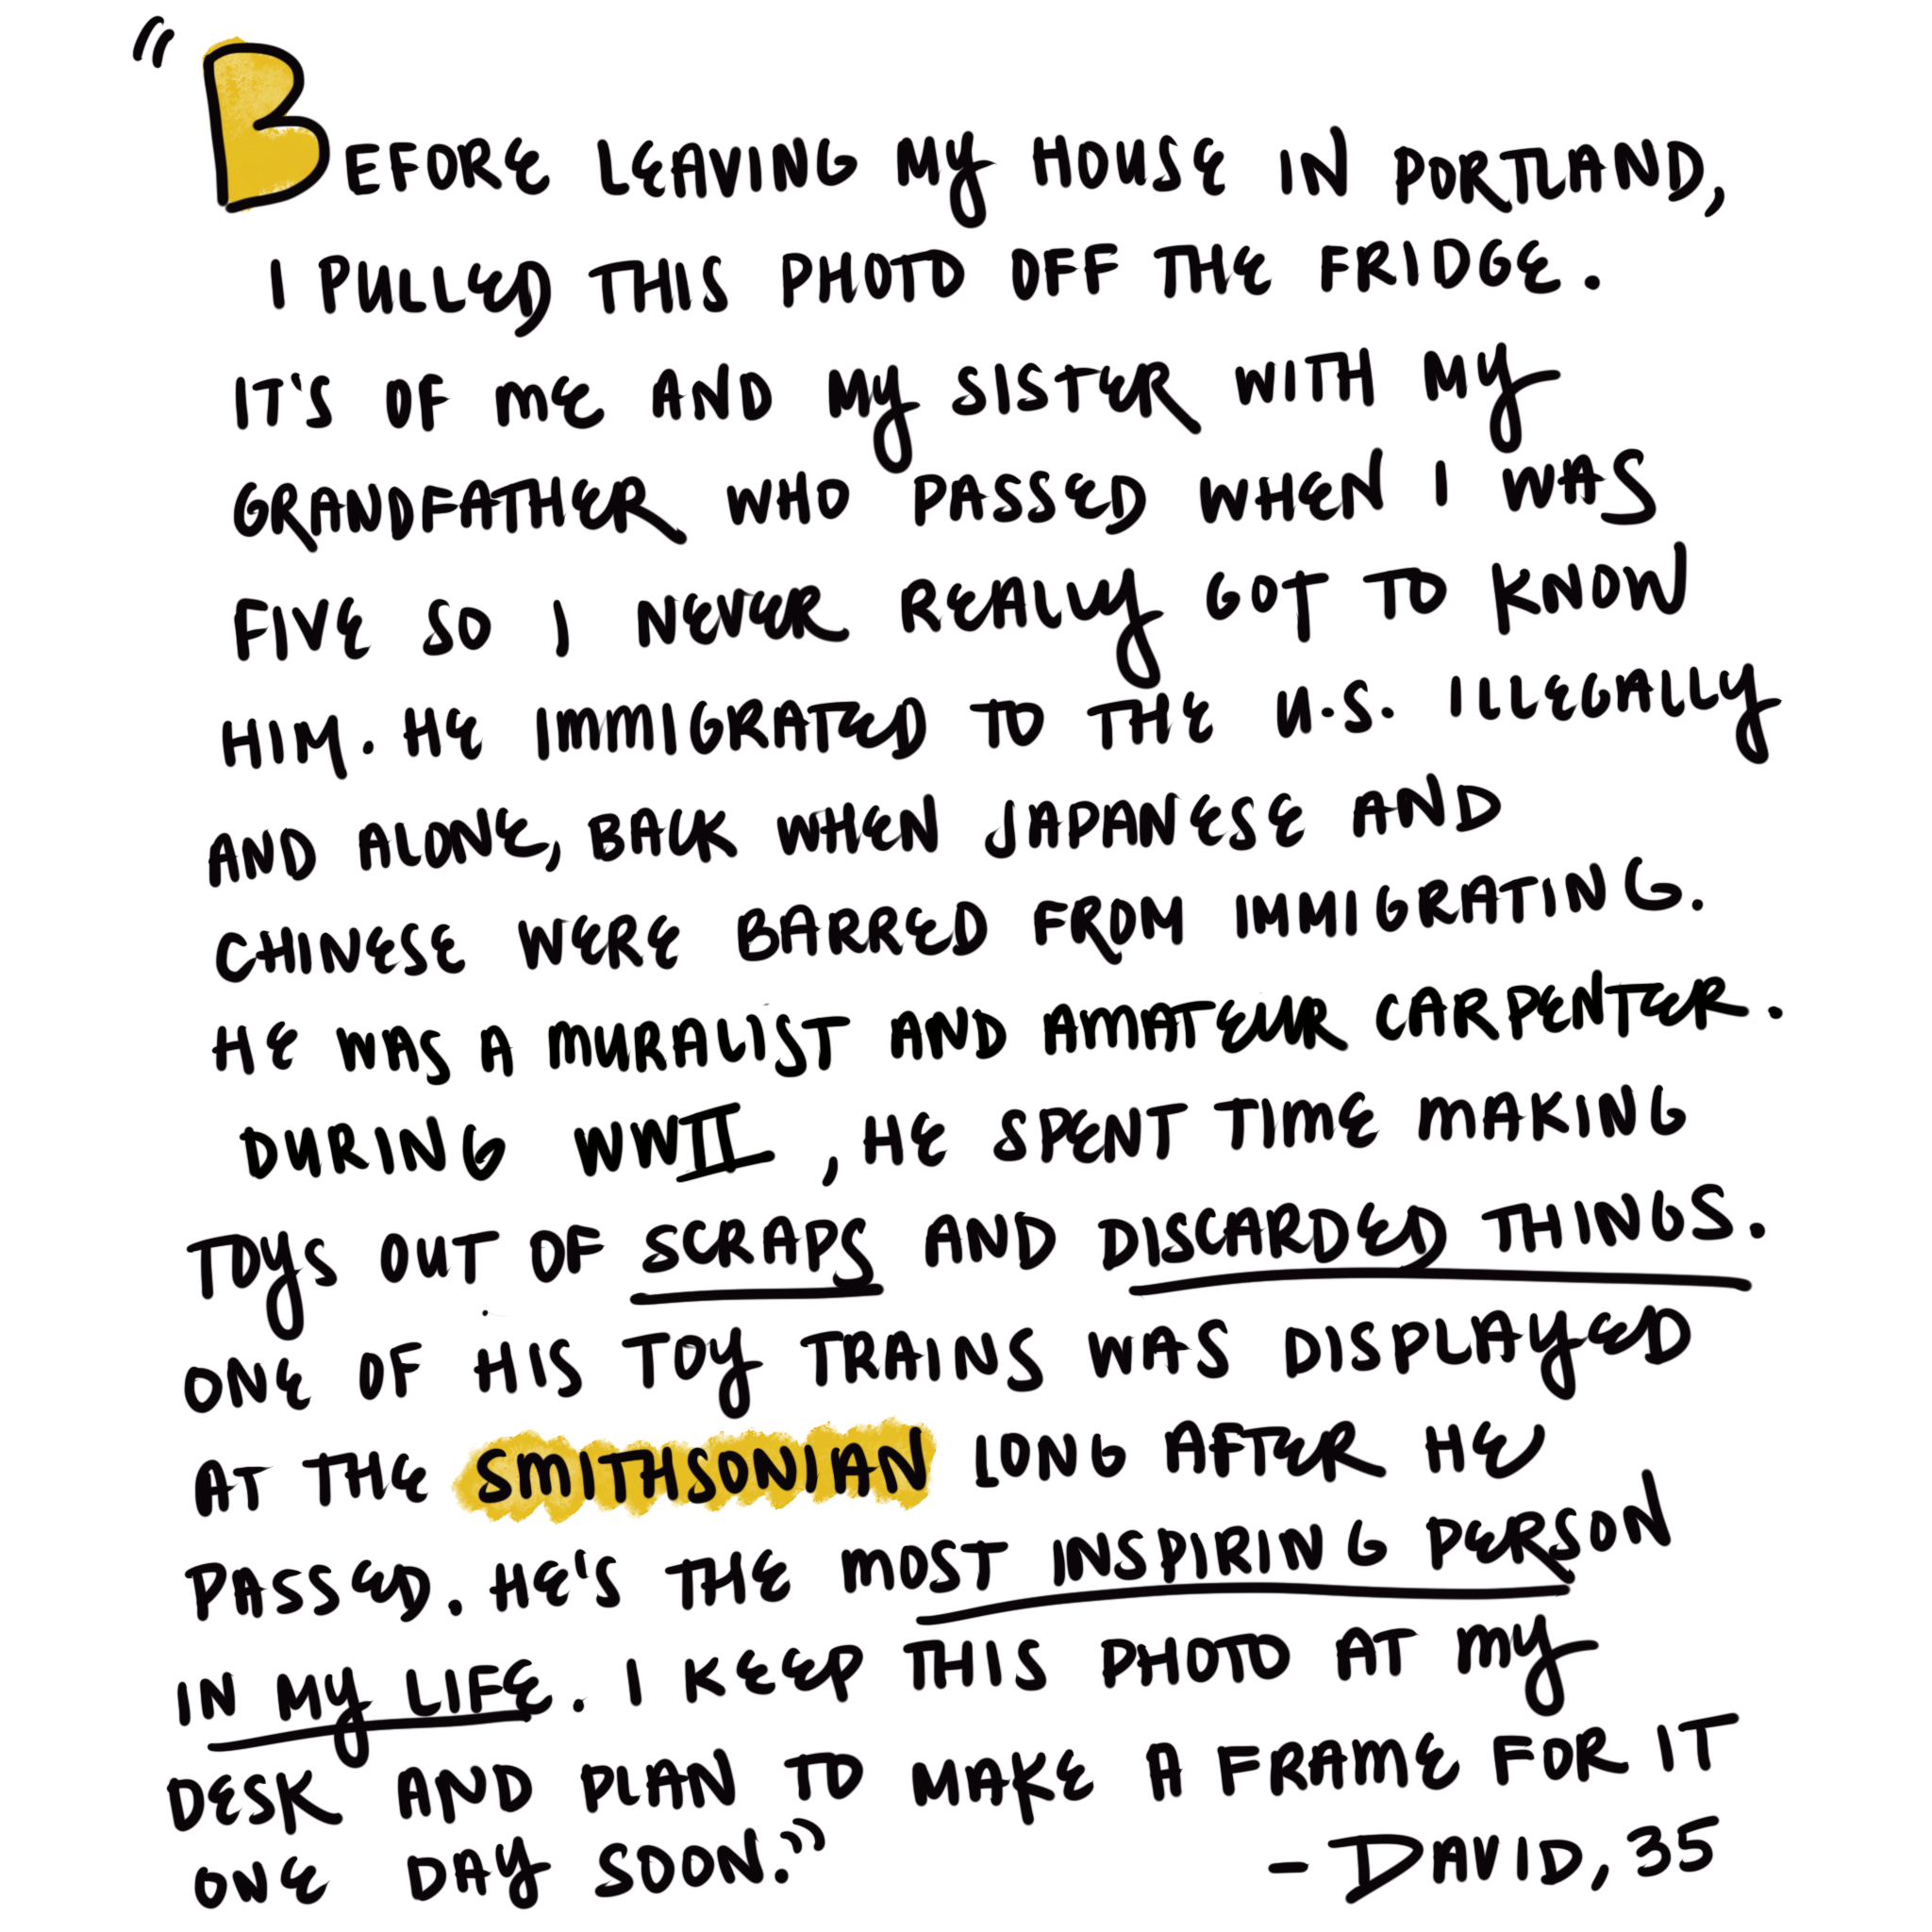 “BEFORE LEAVING MY HOUSE IN PORTLAND,
I PULLED THIS PHOTO OFF THE FRIDGE.
IT'S OF ME AND MY SISTER WITH MY
GRANDFATHER WHO PASSED WHEN I WAS
FIVE SO I NEVER REALLY GOT TO KNOW
HIM. HE IMMIGRATED TO THE U.S. ILLEGALLY
AND ALONE, BACK WHEN JAPANESE AND
CHINESE WERE BARRED FROM IMMIGRATING.
HE WAS A MURALIST AND AMATEUR CARPENTER.
DURING WWII, HE SPENT TIME MAKING
TOYS OUT OF SCRAPS AND DISCARDED THINGS.
ONE OF HIS TOY TRAINS WAS DISPLAYED
AT THE SMITHSONIAN LONG AFTER HE
PASSED. HE'S THE MOST INSPIRING PERSON
IN MY LIFE. I KEEP THIS PHOTO AT MY
DESK AND PLAN TO MAKE A FRAME FOR IT
ONE DAY SOON.” - DAVID, 35